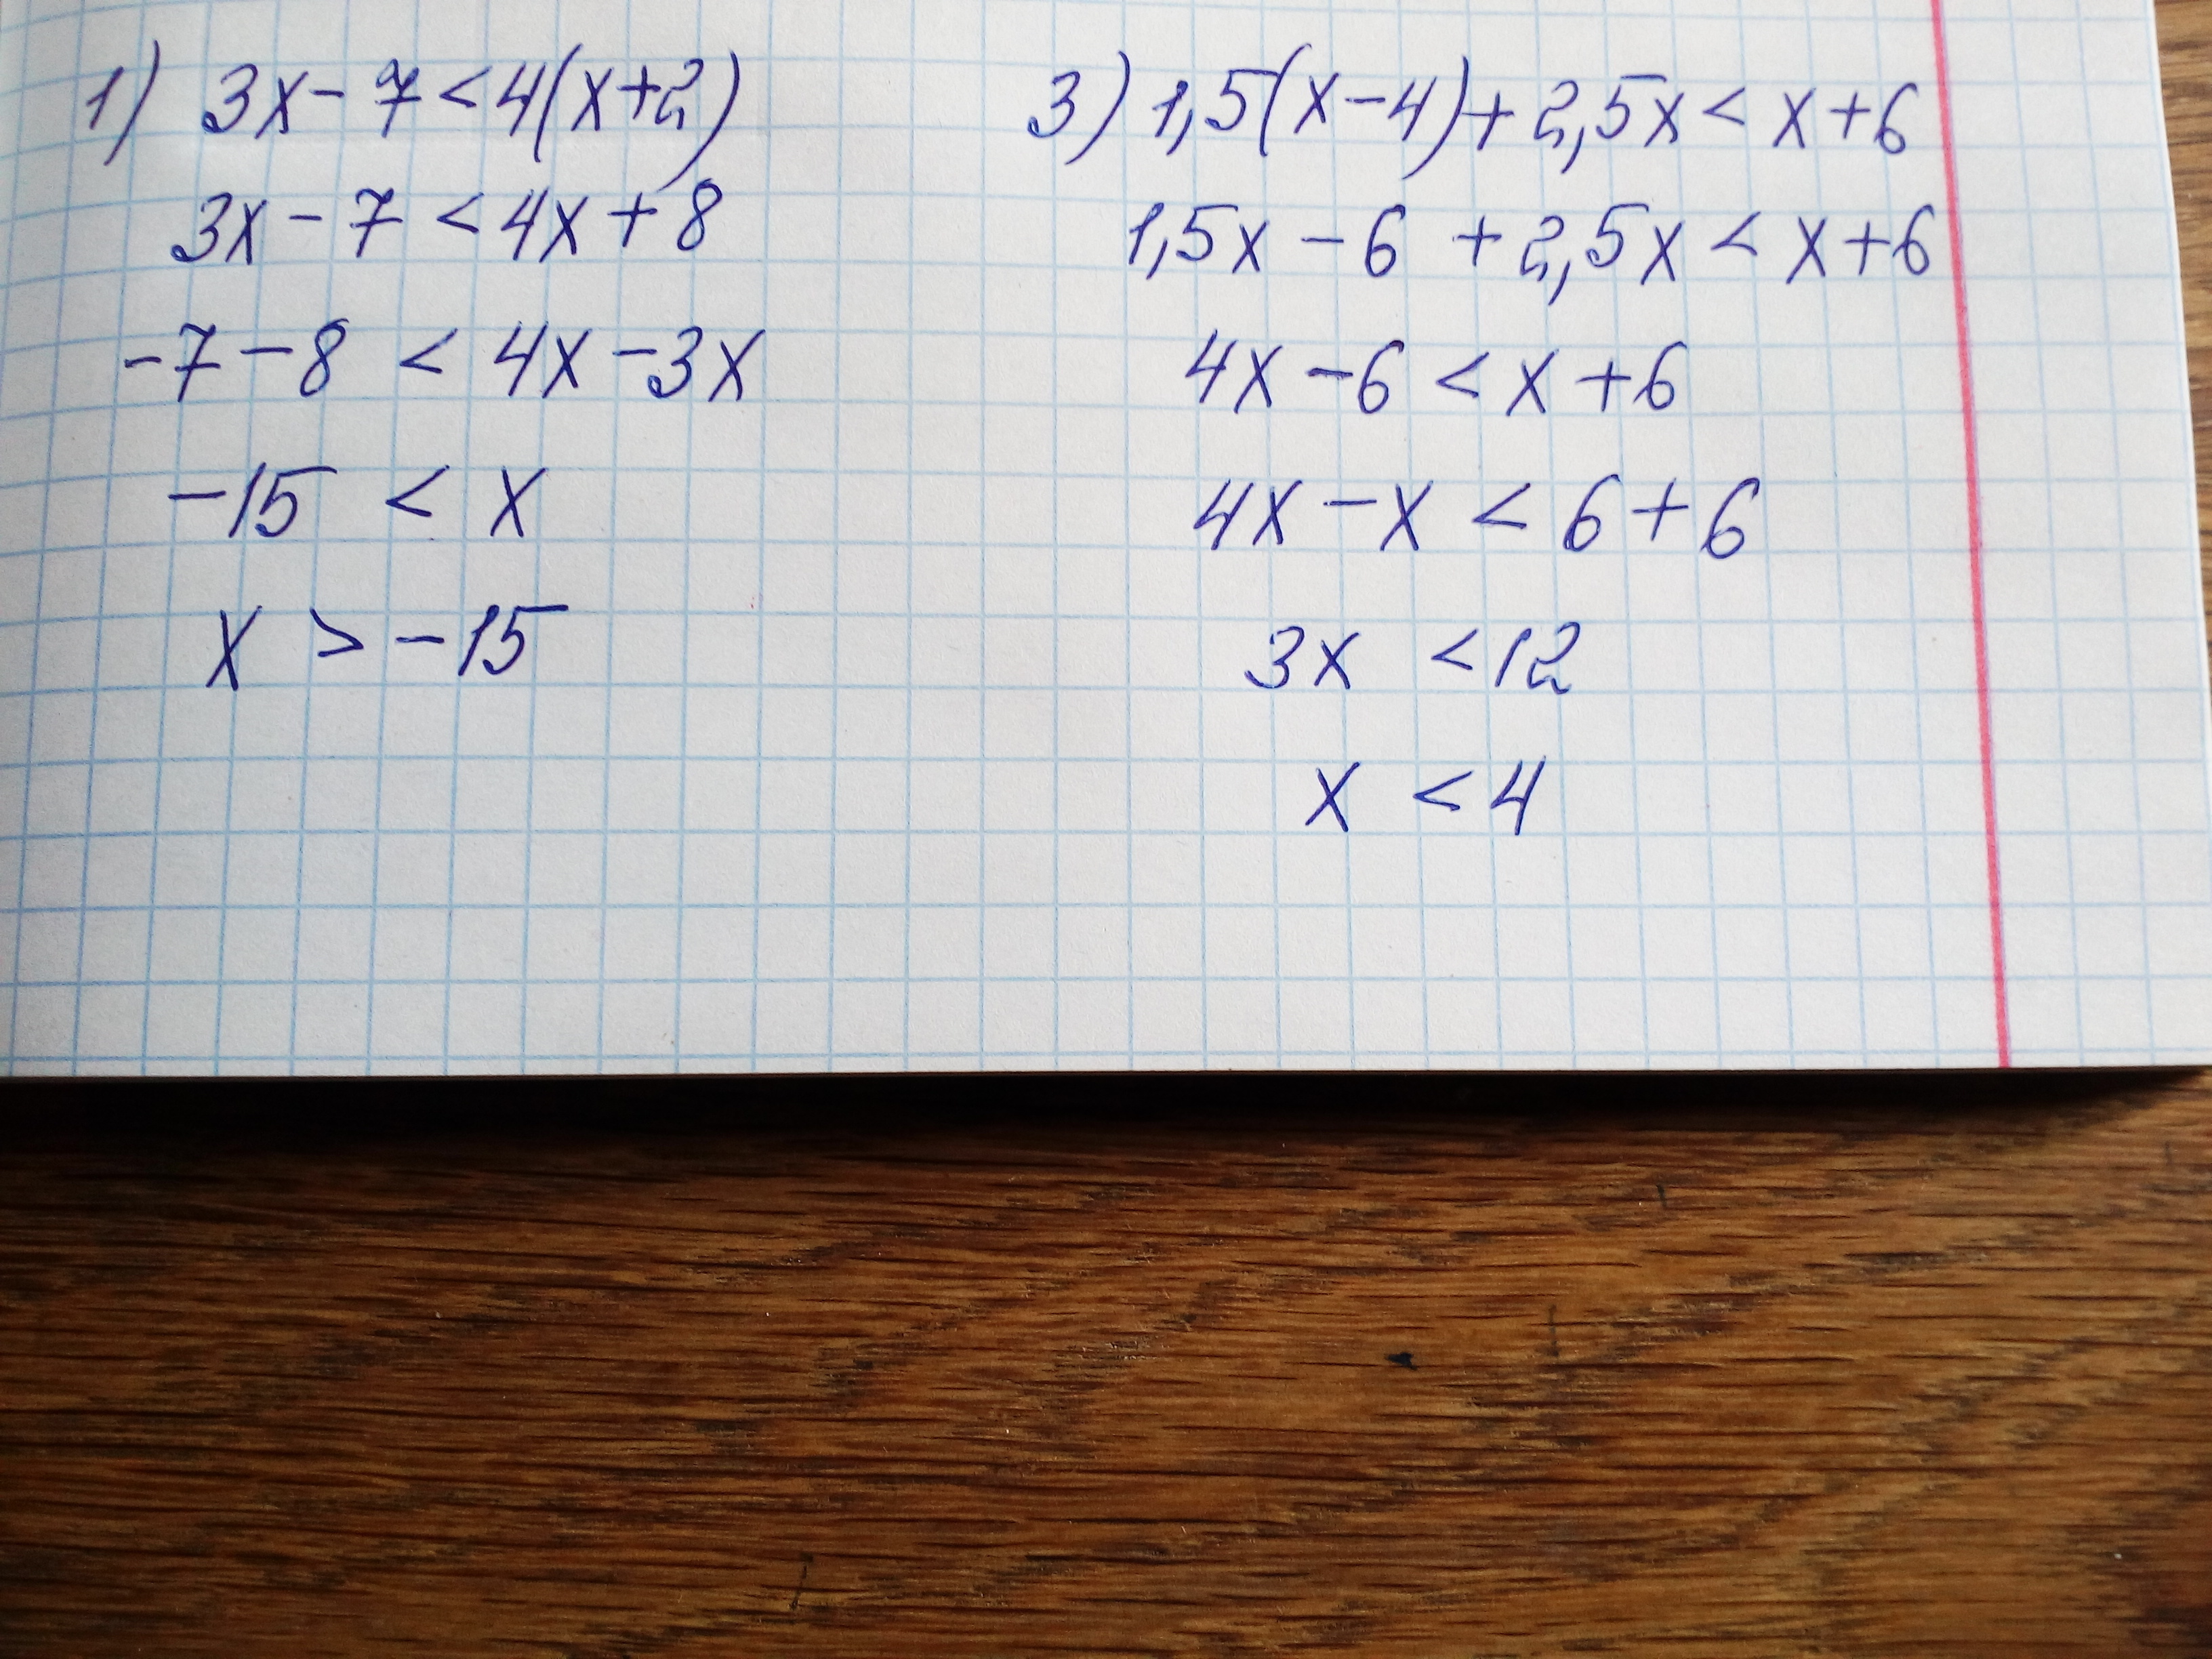 1) 3x-7<4(x+2)
3x-7<4x+8
-7-8 < 4x-3x
-15 < x
x > -15
3) 1,5(x-4)+2,5x<x+6
1,5x-6 +2,5x<x+6
4x-6<x+6
4x-x<6+6
3x <12
x <4